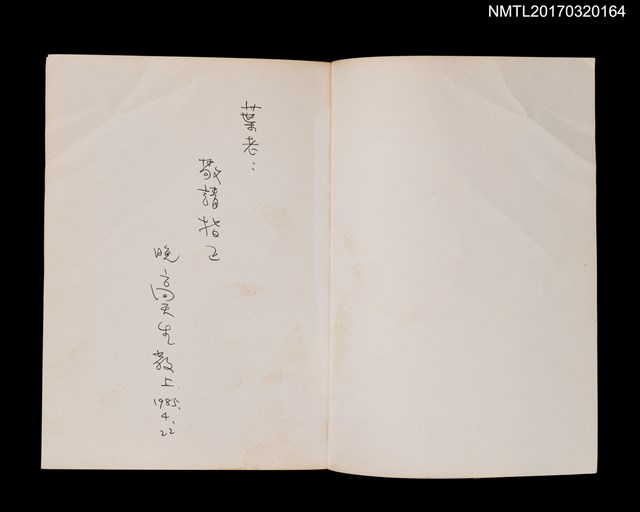 NMTL20170320164
葉老：
敬請指正
晚高天生敬上
1985.
4.
22